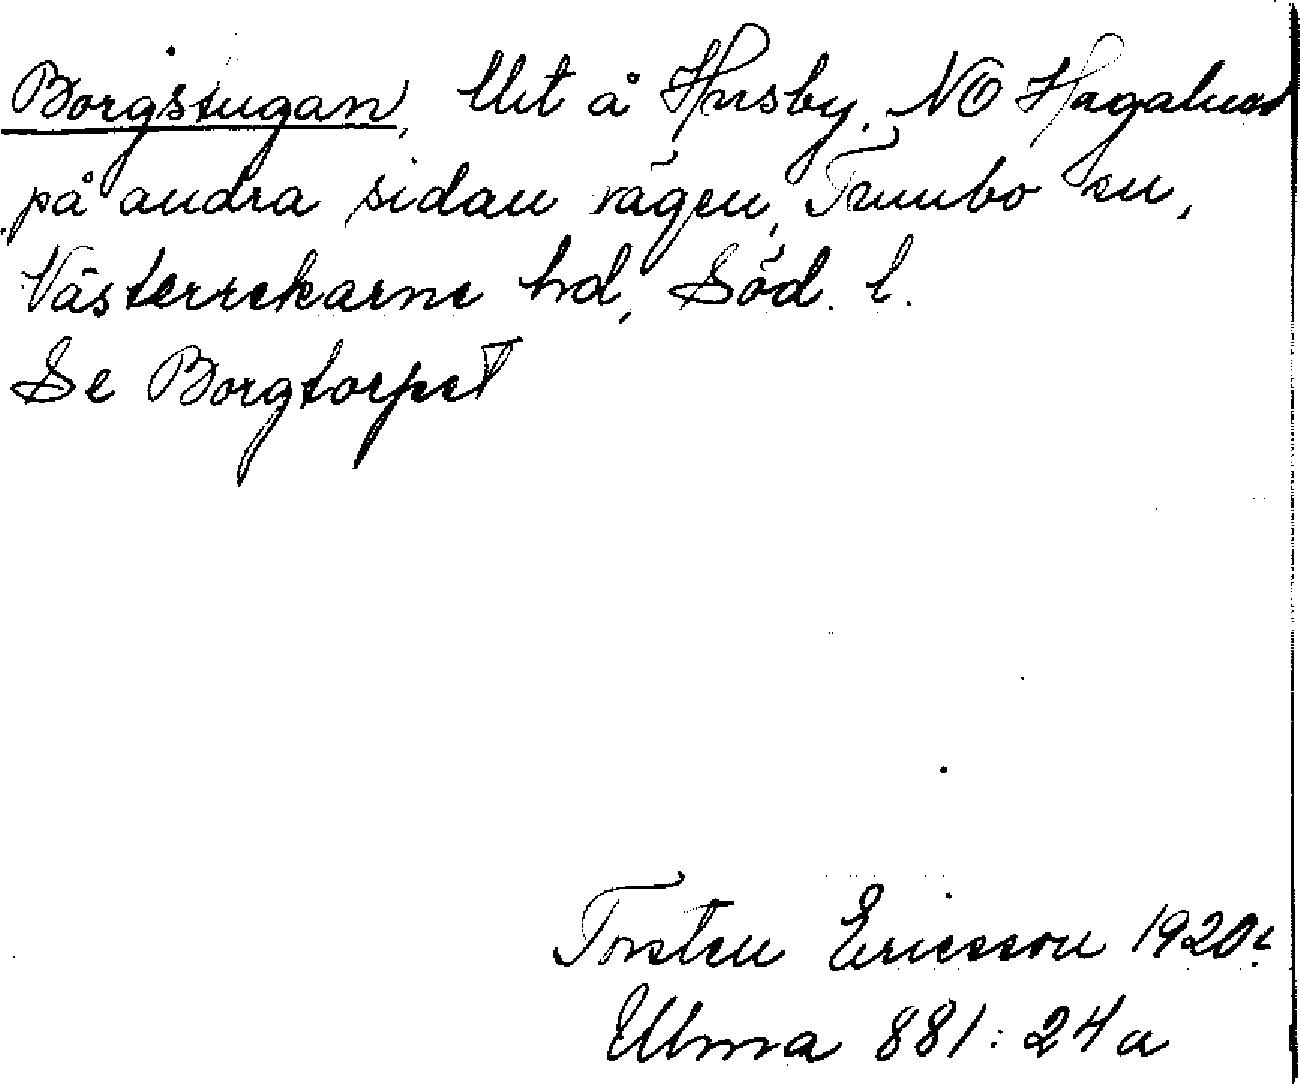 Borgstugan, Utt å Husby. NO Hagalund
på andra sidan vägen, Tumbo sn,
Västerrekarne hd, Söd. l.
Se Borgtorpet
Torsten Ericsson 1920.
Ulma 881:24a